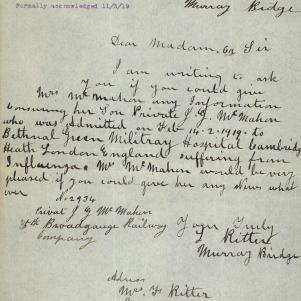 Formally acknowledged 11/3/19
Murray Bridge
Dear Madam, or Sir
I am writing to ask
You if you could give
Mrs McMahon any Information
Consuring her Son Private J G McMahon
who was Admitted on Feb 14-2-1919. to
Bethnal Green Militray Hospital Cambridge
Heath London England suffering from
Influenza. Mrs McMahon would be very
pleased if you could give her any News what
ever
No 2934
Privat J G McMahon
5th Broadgauge Railway
Company
Yours Truly
L Ritter
Murray Bridge
Adress
Mrs L Ritter